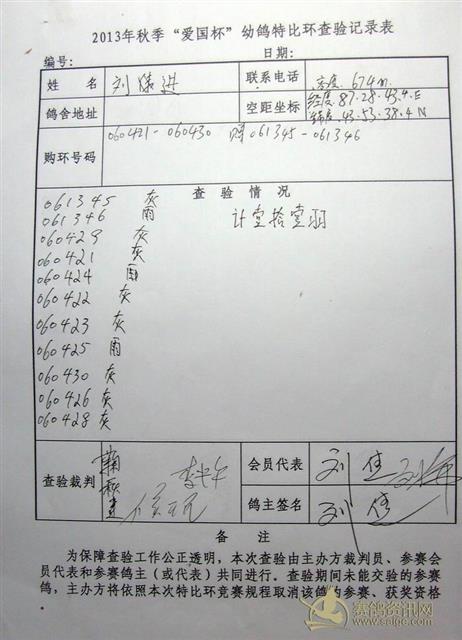 2013年秋季“爱国杯”幼鸽特比环查验记录表
编号: 日期:
姓 名 刘 进 联系电话 高度. 674m
鸽舍地址 空距坐标 经度. 87.28.43.4.E
纬度. 43.53.38.4 N
购环号码 060421-060430 赠 061345-061346
查 验 情 况
061345 灰
061346 雨 计壹拾壹羽
060429 灰
060421 灰
060424 雨
060422 灰
060423 灰
060425 雨
060430 灰
060426 灰
060428 灰
查验裁判 会员代表 刘 佳
鸽主签名 刘 佳
备 注
为保障查验工作公正透明，本次查验由主办方裁判员、参赛会
员代表和参赛鸽主（或代表）共同进行。查验期间未能交验的参赛
鸽，主办方将依照本次特比环竞赛规程取消该鸽的参赛、获奖资格
赛鸽资讯网
www.saige.com